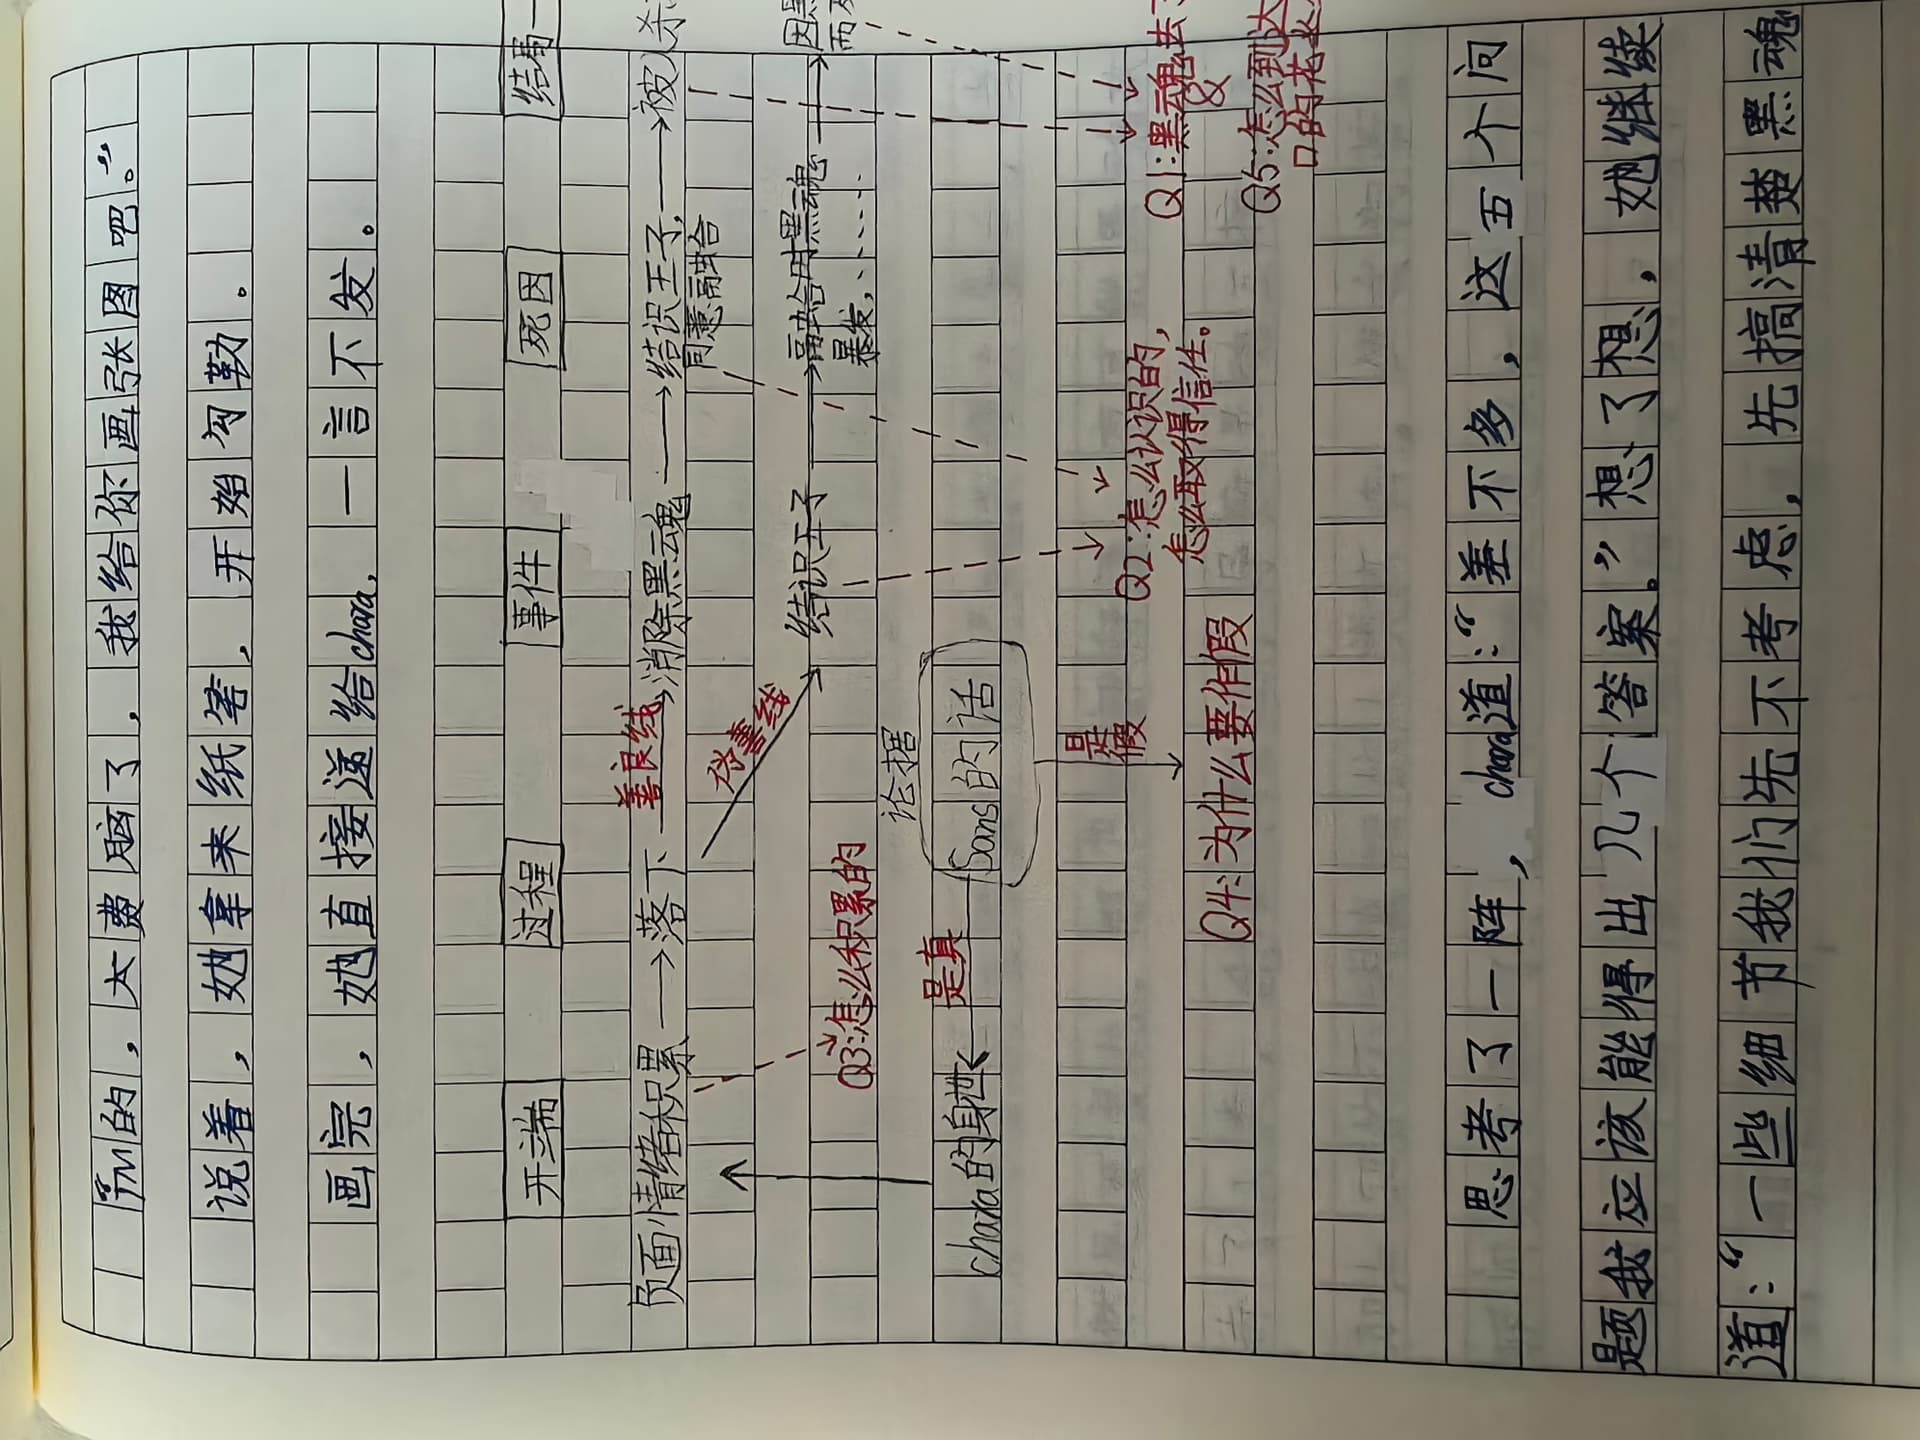 “TM的，大费脑了，我给你画张图吧。”
说着，她拿来纸笔，开始勾勒。
画完，她直接递给chara，一言不发。
开端 过程 事件 死因 结局
负面情绪积累→落下 善良线→消除黑魂→结识王子，→被人杀
同意融合
伪善线 结识王子→融合用黑魂→因黑
暴发，…… 而死
Q3:怎么积累的
论据
Sans的话
是真
chara的身世
是假
Q4:为什么要作假
Q2:怎么认识的，
怎么取得信任。
Q1:黑魂去
&
Q5:怎么到达
口的花
思考了一阵，chara道：“差不多，这五个问
题我应该能得出几个答案。”想了想，她继续
道：“一些细节我们先不考虑，先搞清楚黑魂